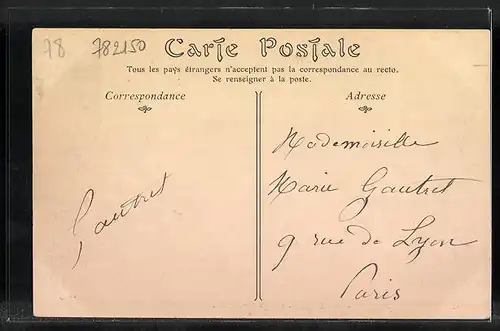 78 782150
Carte Postale
Tous les pays étrangers n'acceptent pas la correspondance au recto.
Se renseigner à la poste.
Correspondance
Gautret
Adresse
Mademoiselle
Marie Gautret
9 rue de Lyon
Paris